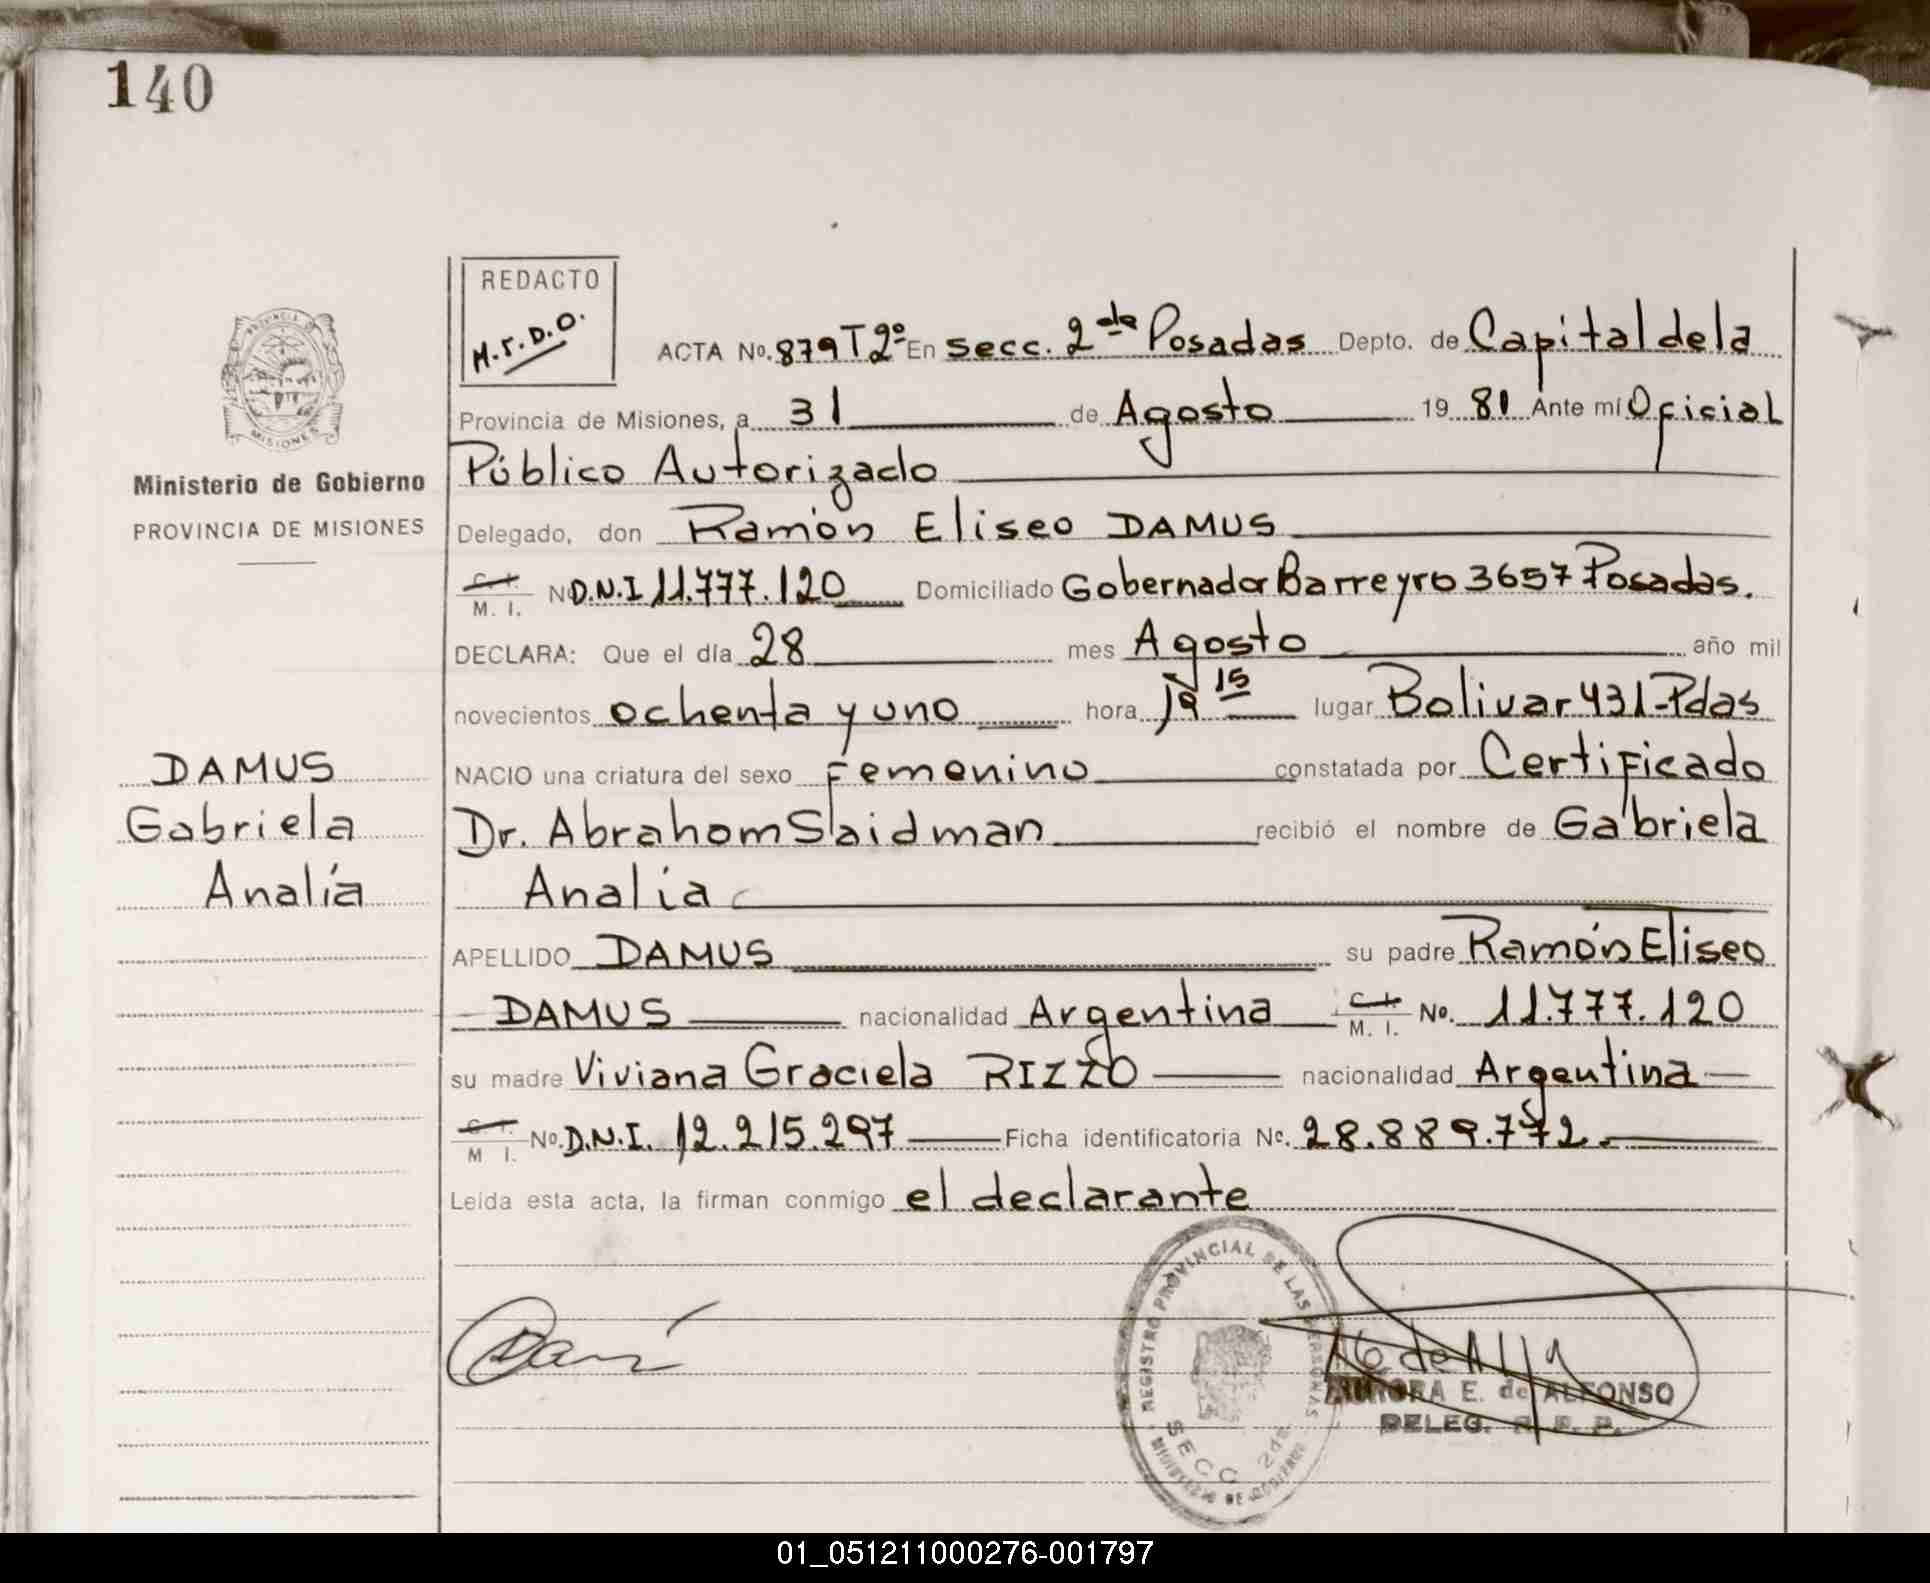 140
REDACTO
M.S.D.O.
PROVINCIA DE
MISIONES
Ministerio de Gobierno
PROVINCIA DE MISIONES
ACTA No. 879 T 2º En secc. 2da Posadas Depto. de Capital de la
Provincia de Misiones, a 31 de Agosto 19 81 Ante mí Oficial
Público Autorizado
Delegado, don Ramón Eliseo DAMUS
C. I.
M. I. No D.N.I 11.777.120 Domiciliado Gobernador Barreyro 3657 Posadas.
DECLARA: Que el día 28 mes Agosto año mil
novecientos ochenta y uno hora 19 15 lugar Bolivar 431-Pdas
NACIO una criatura del sexo Femenino constatada por Certificado
Dr. Abraham Slaidman recibió el nombre de Gabriela
Analía
DAMUS
Gabriela
Analía
APELLIDO DAMUS su padre Ramón Eliseo
DAMUS nacionalidad Argentina C. I. M. I. No. 11.777.120
su madre Viviana Graciela RIZZO nacionalidad Argentina
C. I.
M I. No. D.N.I. 12.215.297 Ficha identificatoria No. 28.889.772.
Leída esta acta, la firman conmigo el declarante
REGISTRO PROVINCIAL DE LAS PERSONAS
SECC 2da
MINISTERIO DE GOBIERNO
AURORA E. de ALFONSO
DELEG. R. P. P.
01_051211000276-001797